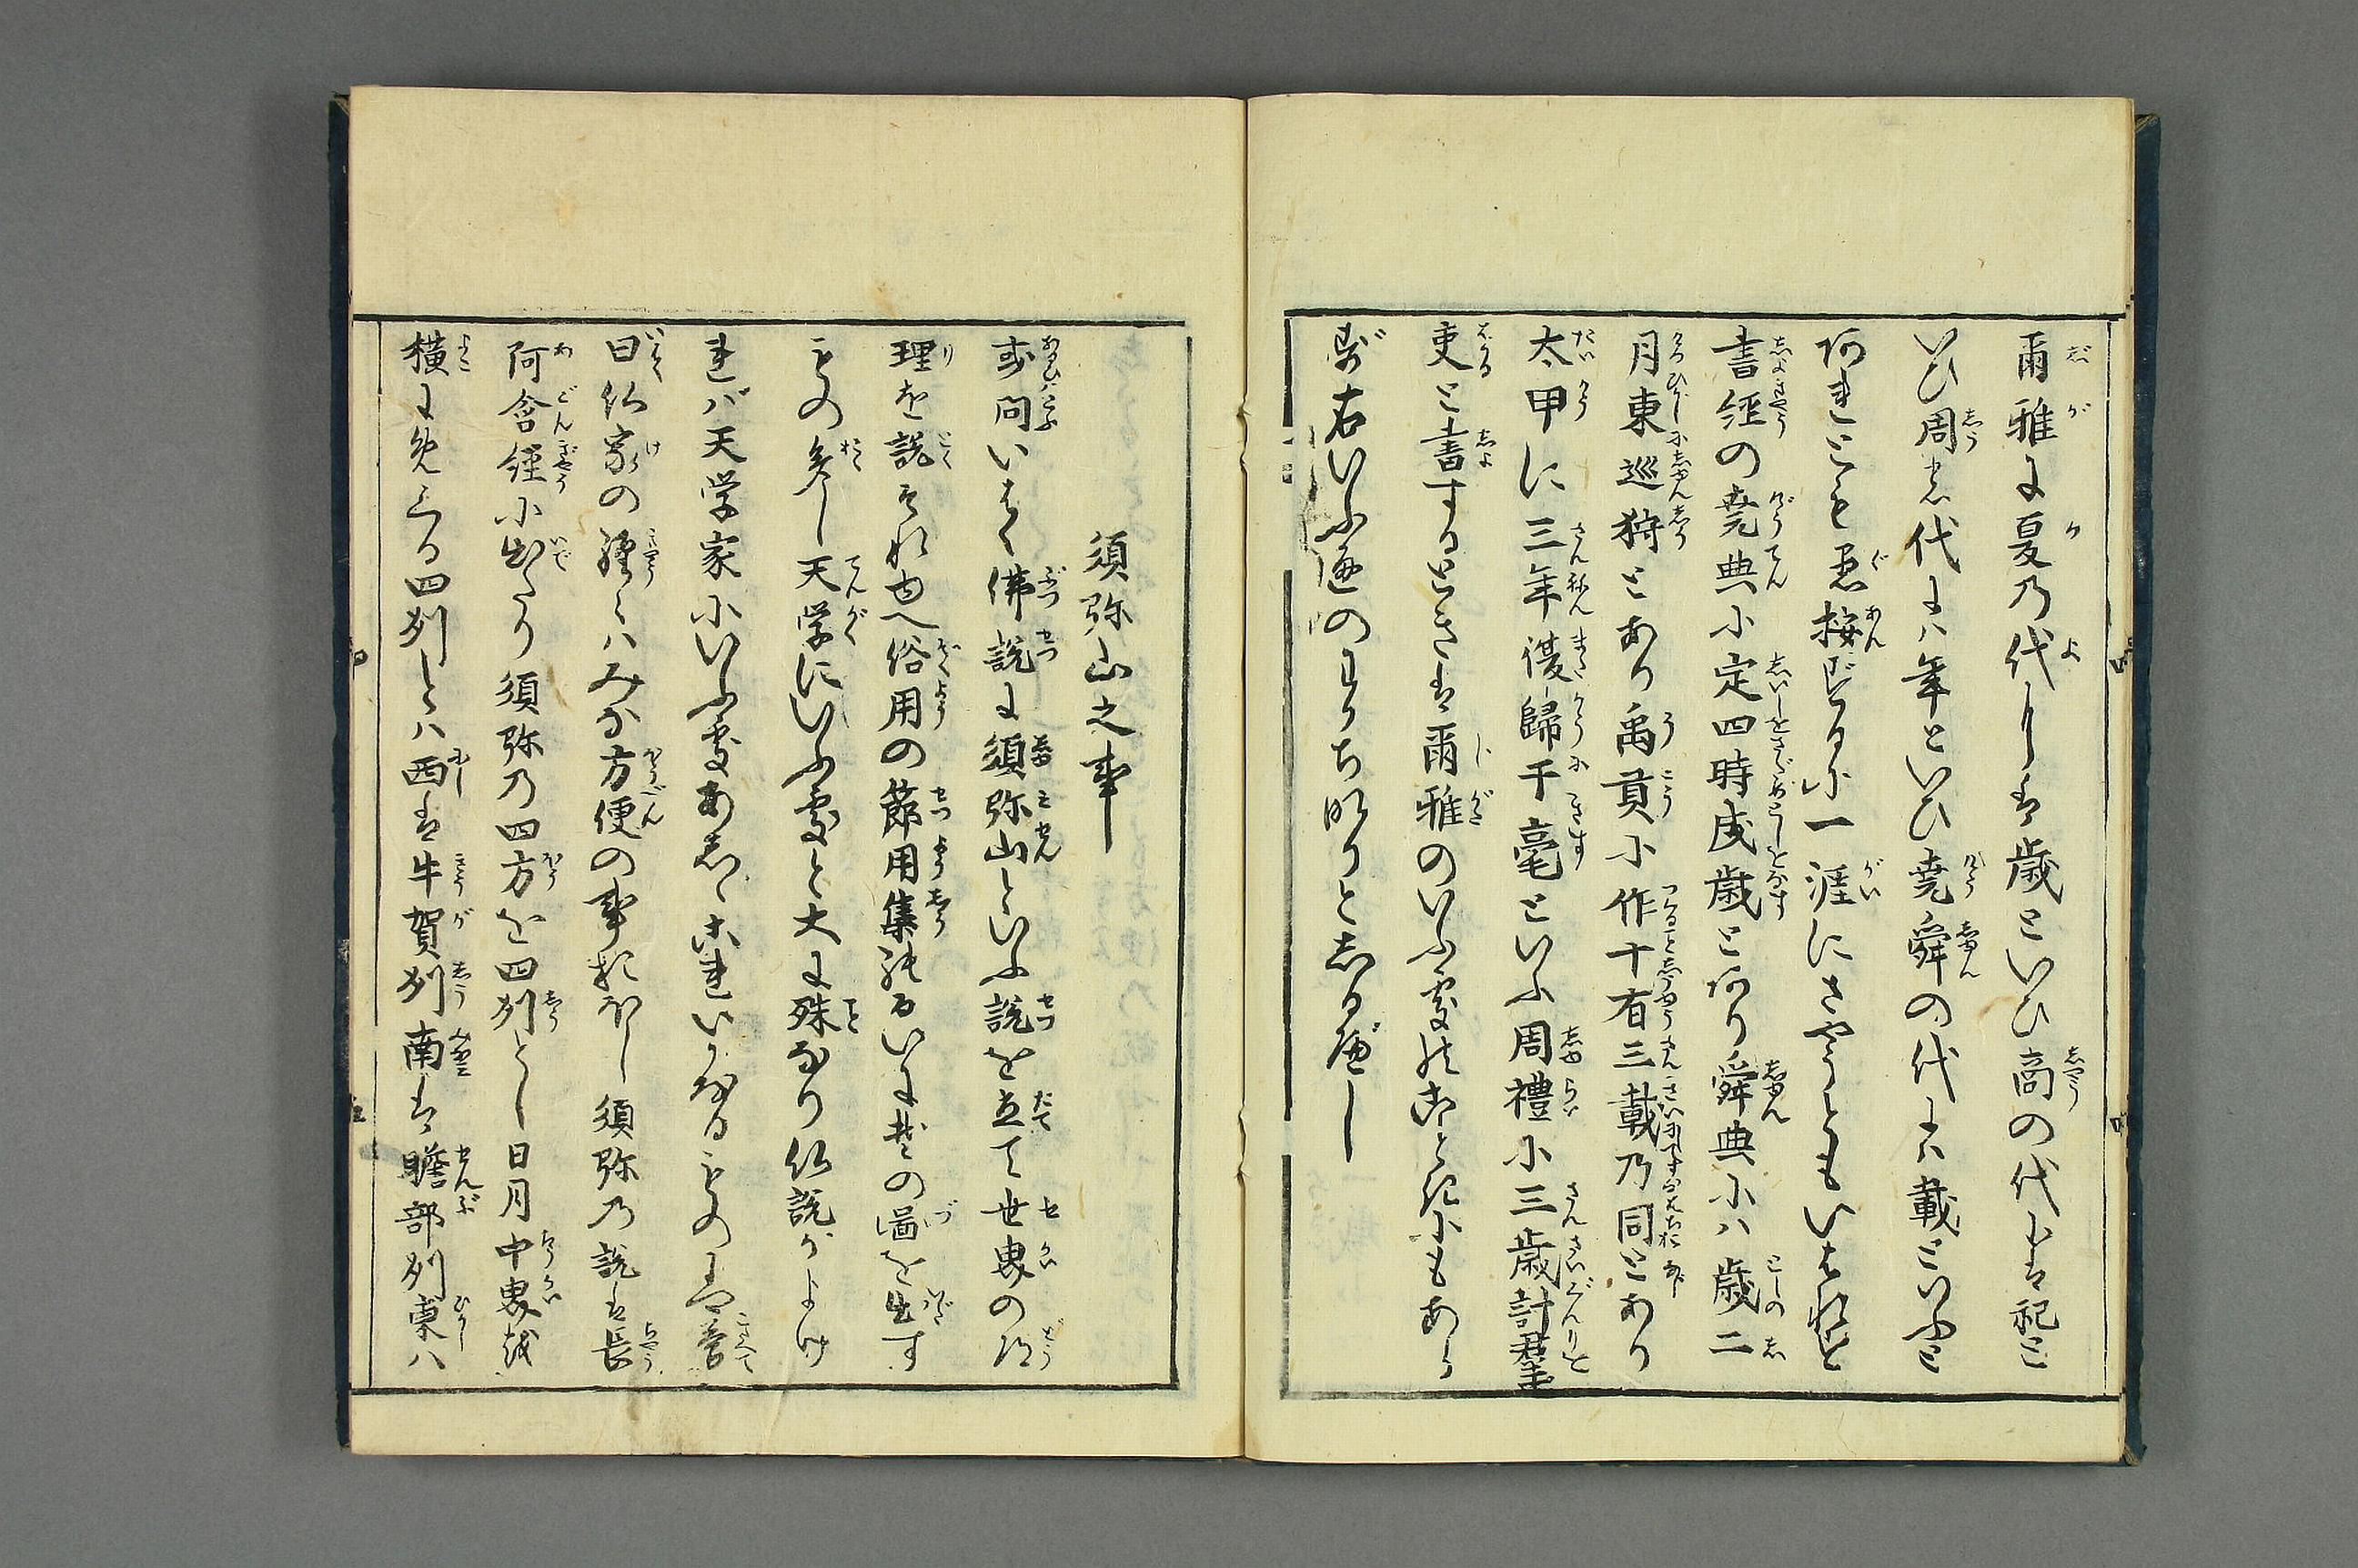 爾雅に夏乃代には歳といひ商の代には祀と
いひ周の代には年といひ堯舜の代には載といふと
あれども愚按ずるに一涯にさやうともいはれず
書経の堯典に定四時成歳とあり舜典には歳二
月東巡狩とあり禹貢に作十有三載乃同とあり
太甲に三年復歸于亳といふ周禮に三歳計群
吏と書するときは爾雅のいふ處のごときにもあら
ず右いふ通のわち也としるべし
須弥山之事
或問いはく佛説に須弥山といふ説を立て世界の
理を説それゆへ俗用の節用集るいに其の圖を出す
もの多し天学にいふ處と大に殊なり仏説がよけ
れバ天学家にいふ處あしゝこれいかなるものにや答
曰仏家の経々ハみな方便の事おほし須弥乃説は長
阿含経に出たり須弥乃四方を四列とし日月中界を
横にめぐる四列とハ西は牛賀列南は瞻部列東ハ